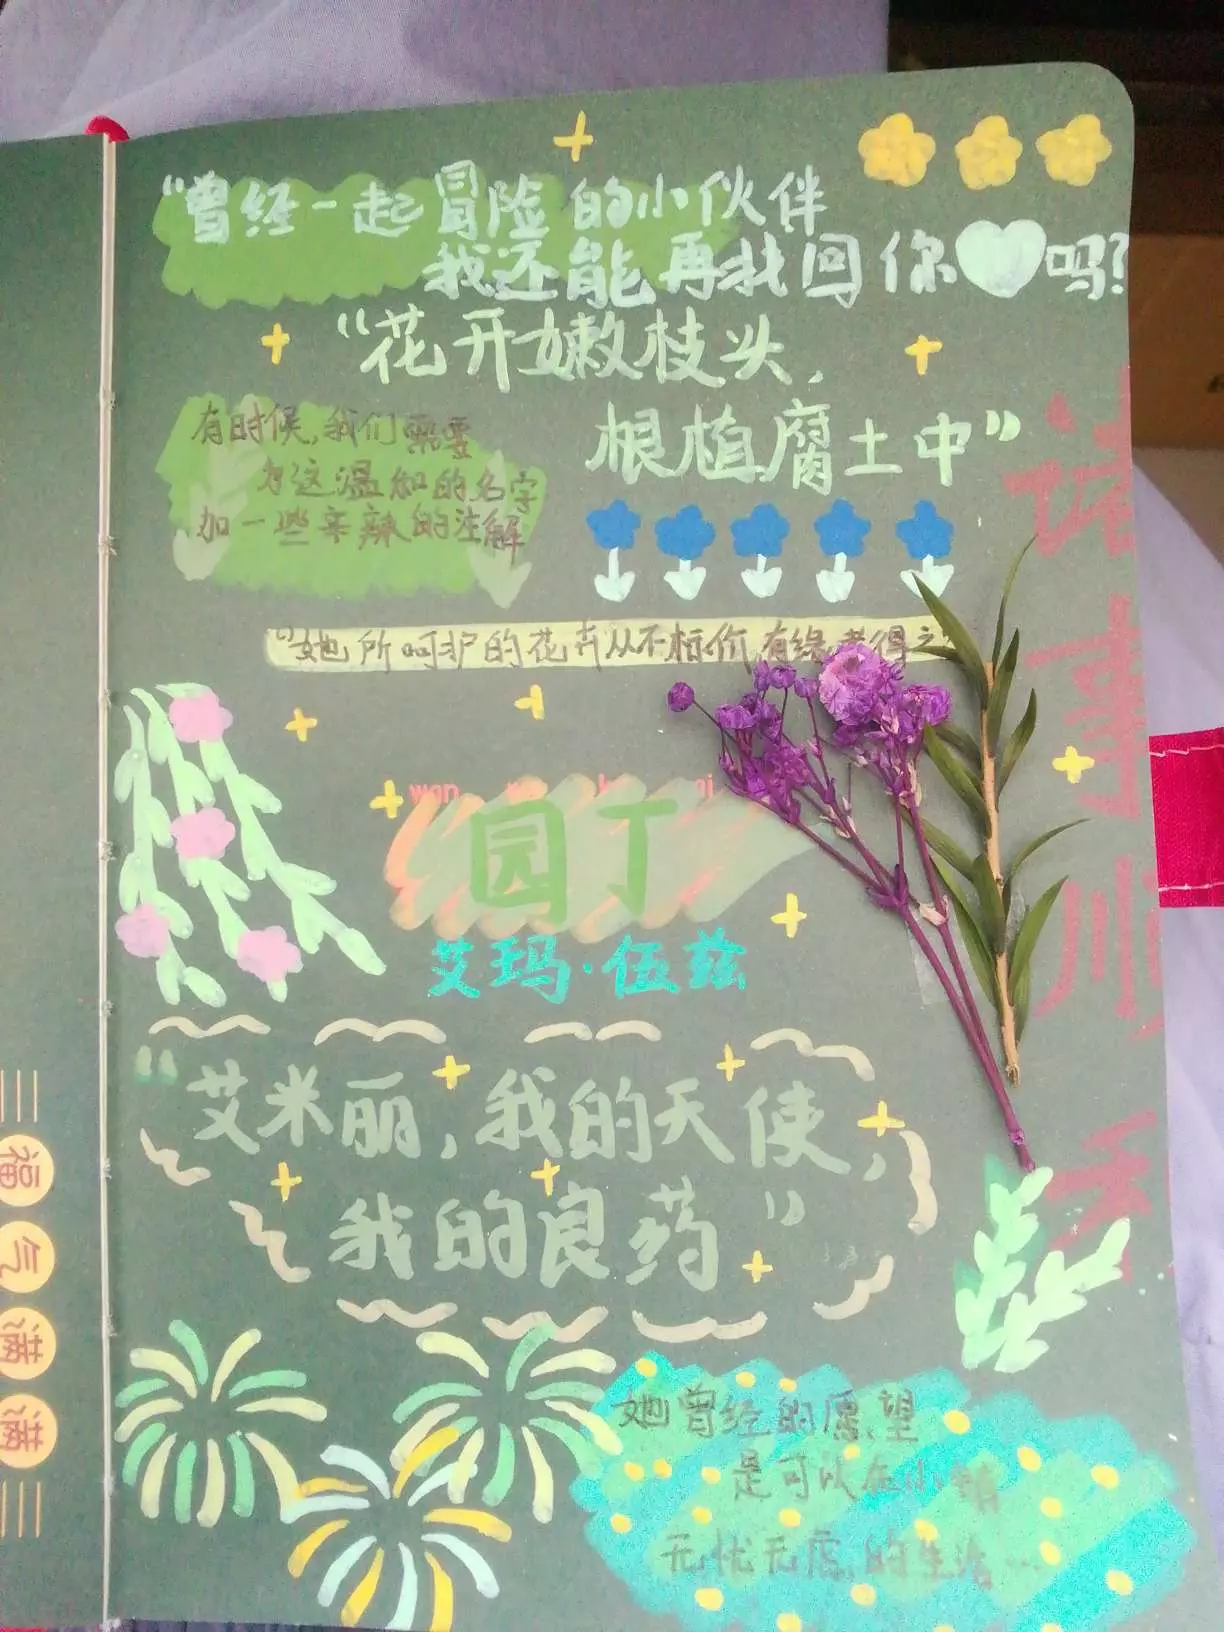 “曾经一起冒险的小伙伴
我还能再找回你吗?
“花开嫩枝头,
根植腐土中”
有时候,我们需要
为这温和的名字
加一些辛辣的注解
“她所呵护的花卉从不标价,有缘者得之”
园丁
艾玛·伍兹
“艾米丽,我的天使,
我的良药”
她曾经的愿望
是可以在小镇
无忧无虑的生活…
诸事顺
福气满满